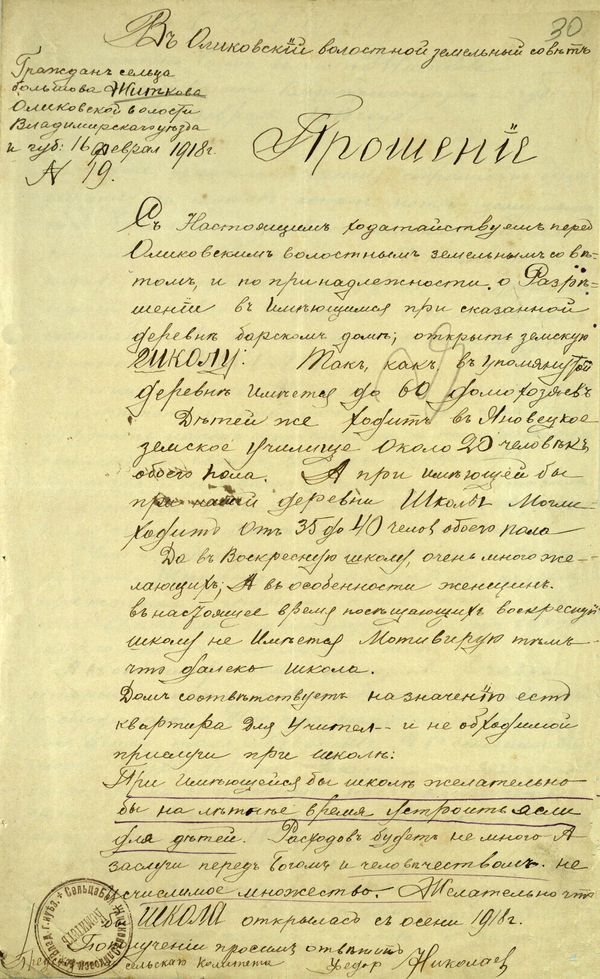 30
Въ Оликовскій волостной земельный совѣтъ
Гражданъ сельца
большова Житкова
Оликовской волости
Владимирскаго уѣзда
и губ: 16 феврал 1918г.
N 19.
Прошеніе
Съ Настоящимъ ходатайствуемъ передъ
Оликовскимъ волостнымъ земельнымъ совѣ-
томъ, и по принадлежности о Разрѣ-
шеніи въ Имѣющимся при сказанной
деревнѣ барскомъ домѣ; открыть земскую
ШКОЛУ: Такъ, какъ въ упомянутой
деревнѣ Имѣется до 60 домохозяевъ
Дѣтей же ходитъ въ Яновецкое
земское училище Около 20 человѣкъ
обоего пола. А при имѣющей бы
при нашей деревни Школы Могли
Ходить Отъ 35 до 40 челов обоего пола
Да въ Воскресную школу, очень много же-
лающихъ; А въ особенности женщинъ.
въ настоящее время посѣщающихъ воскресную
школу не Имѣется Мотивирую тѣмъ
что далеко школа.
Домъ соотвѣтствуетъ назначенію есть
квартира для учител- и не обходимой
прислуги при школѣ:
При Имѣющейся бы школѣ желательно
бы на лѣтнѣе время Устроить ясли
для дѣтей. Расходовъ будетъ не много А
заслуги передъ Богомъ и человѣчествомъ не
исчислимое множество. Желательно что
бы ШКОЛА открылась съ осени 1918г.
По полученіи просимъ отвѣтить
Председ сельскаго комитета Федор Николаев